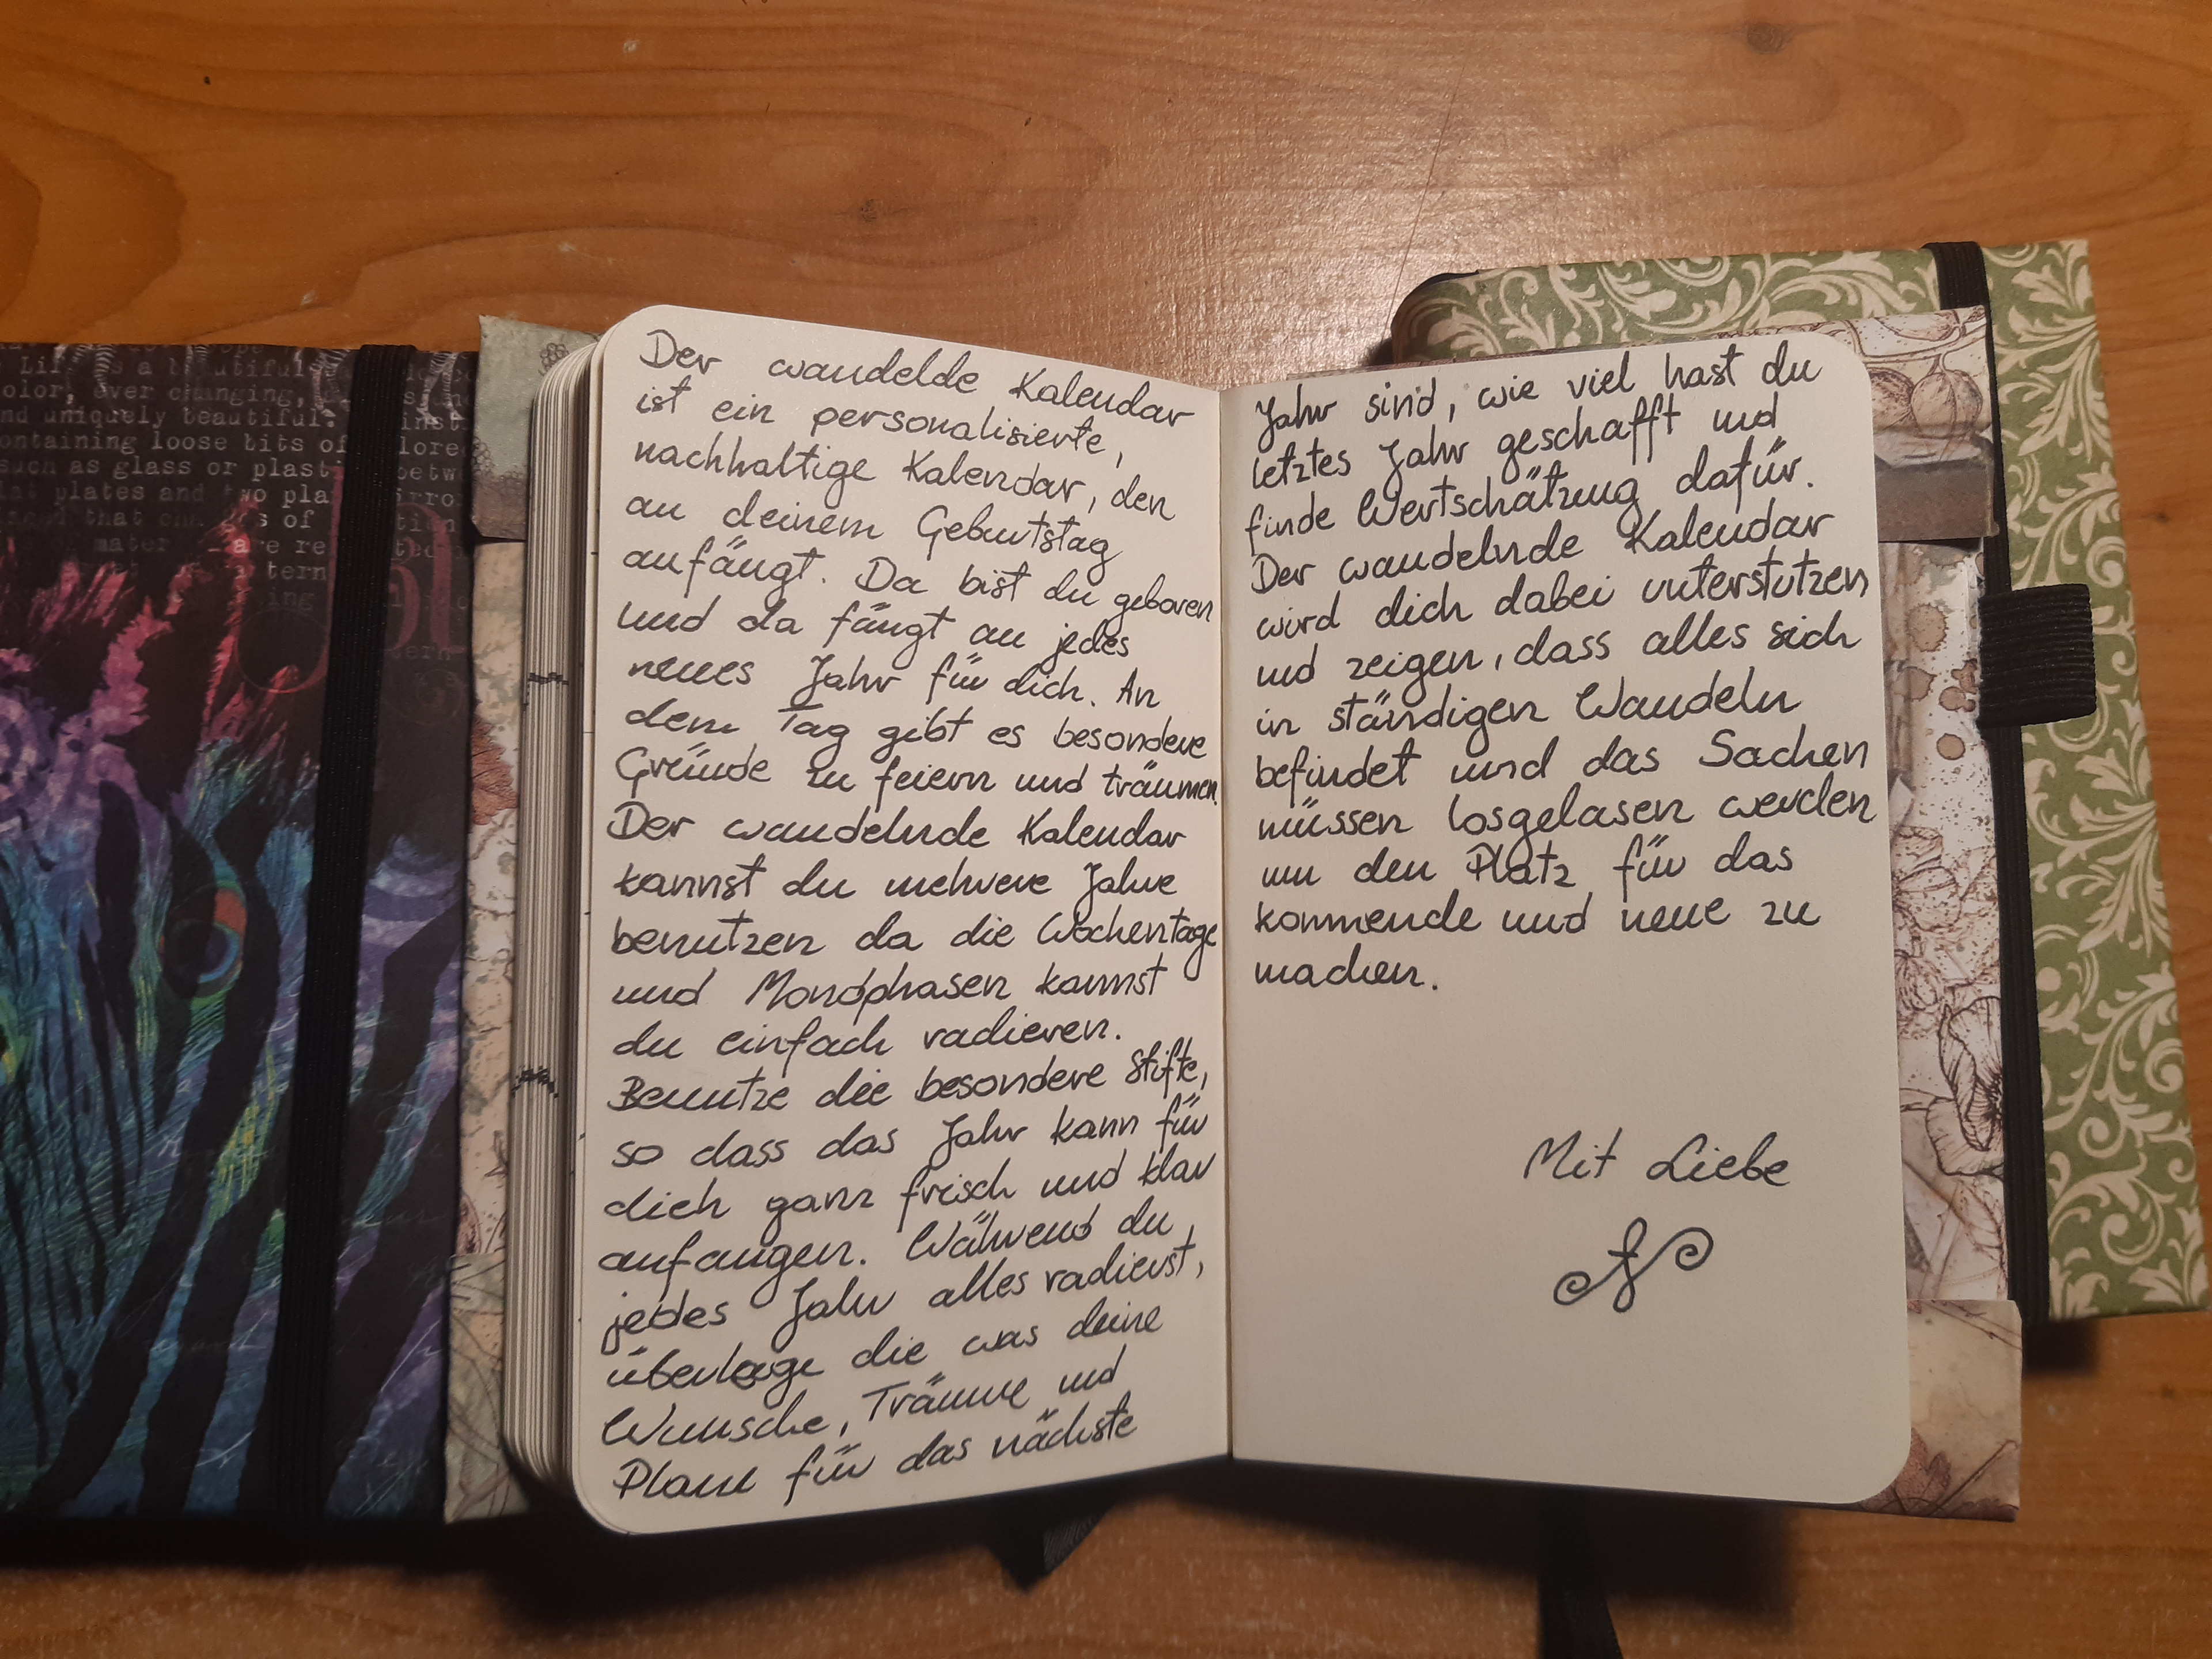 Der wandelde Kalendar
ist ein personalisierte,
nachhaltige Kalendar, den
an deinem Geburtstag
anfängt. Da bist du geboren
und da fängt an jedes
neues Jahr für dich. An
dem Tag gibt es besondere
Gründe zu feiern und träumen.
Der wandelnde Kalendar
kannst du mehrere Jahre
benutzen da die Wochentage
und Mondphasen kannst
du einfach radieren.
Benutze die besondere Stifte,
so dass das Jahr kann für
dich ganz frisch und klar
anfangen. Während du
jedes Jahr alles radierst,
überlege die was deine
Wunsche, Träume und
Plane für das nächste
Jahr sind, wie viel hast du
letztes Jahr geschafft und
finde Wertschätzung dafür.
Der wandelnde Kalendar
wird dich dabei unterstutzen
und zeigen, dass alles sich
in ständigen Wandeln
befindet und das Sachen
müssen losgelasen werden
um den Platz für das
kommende und neue zu
machen.
Mit Liebe
a beautiful
ever changing,
and uniquely beautiful:
containing loose bits of
such as glass or plasti
plates and two